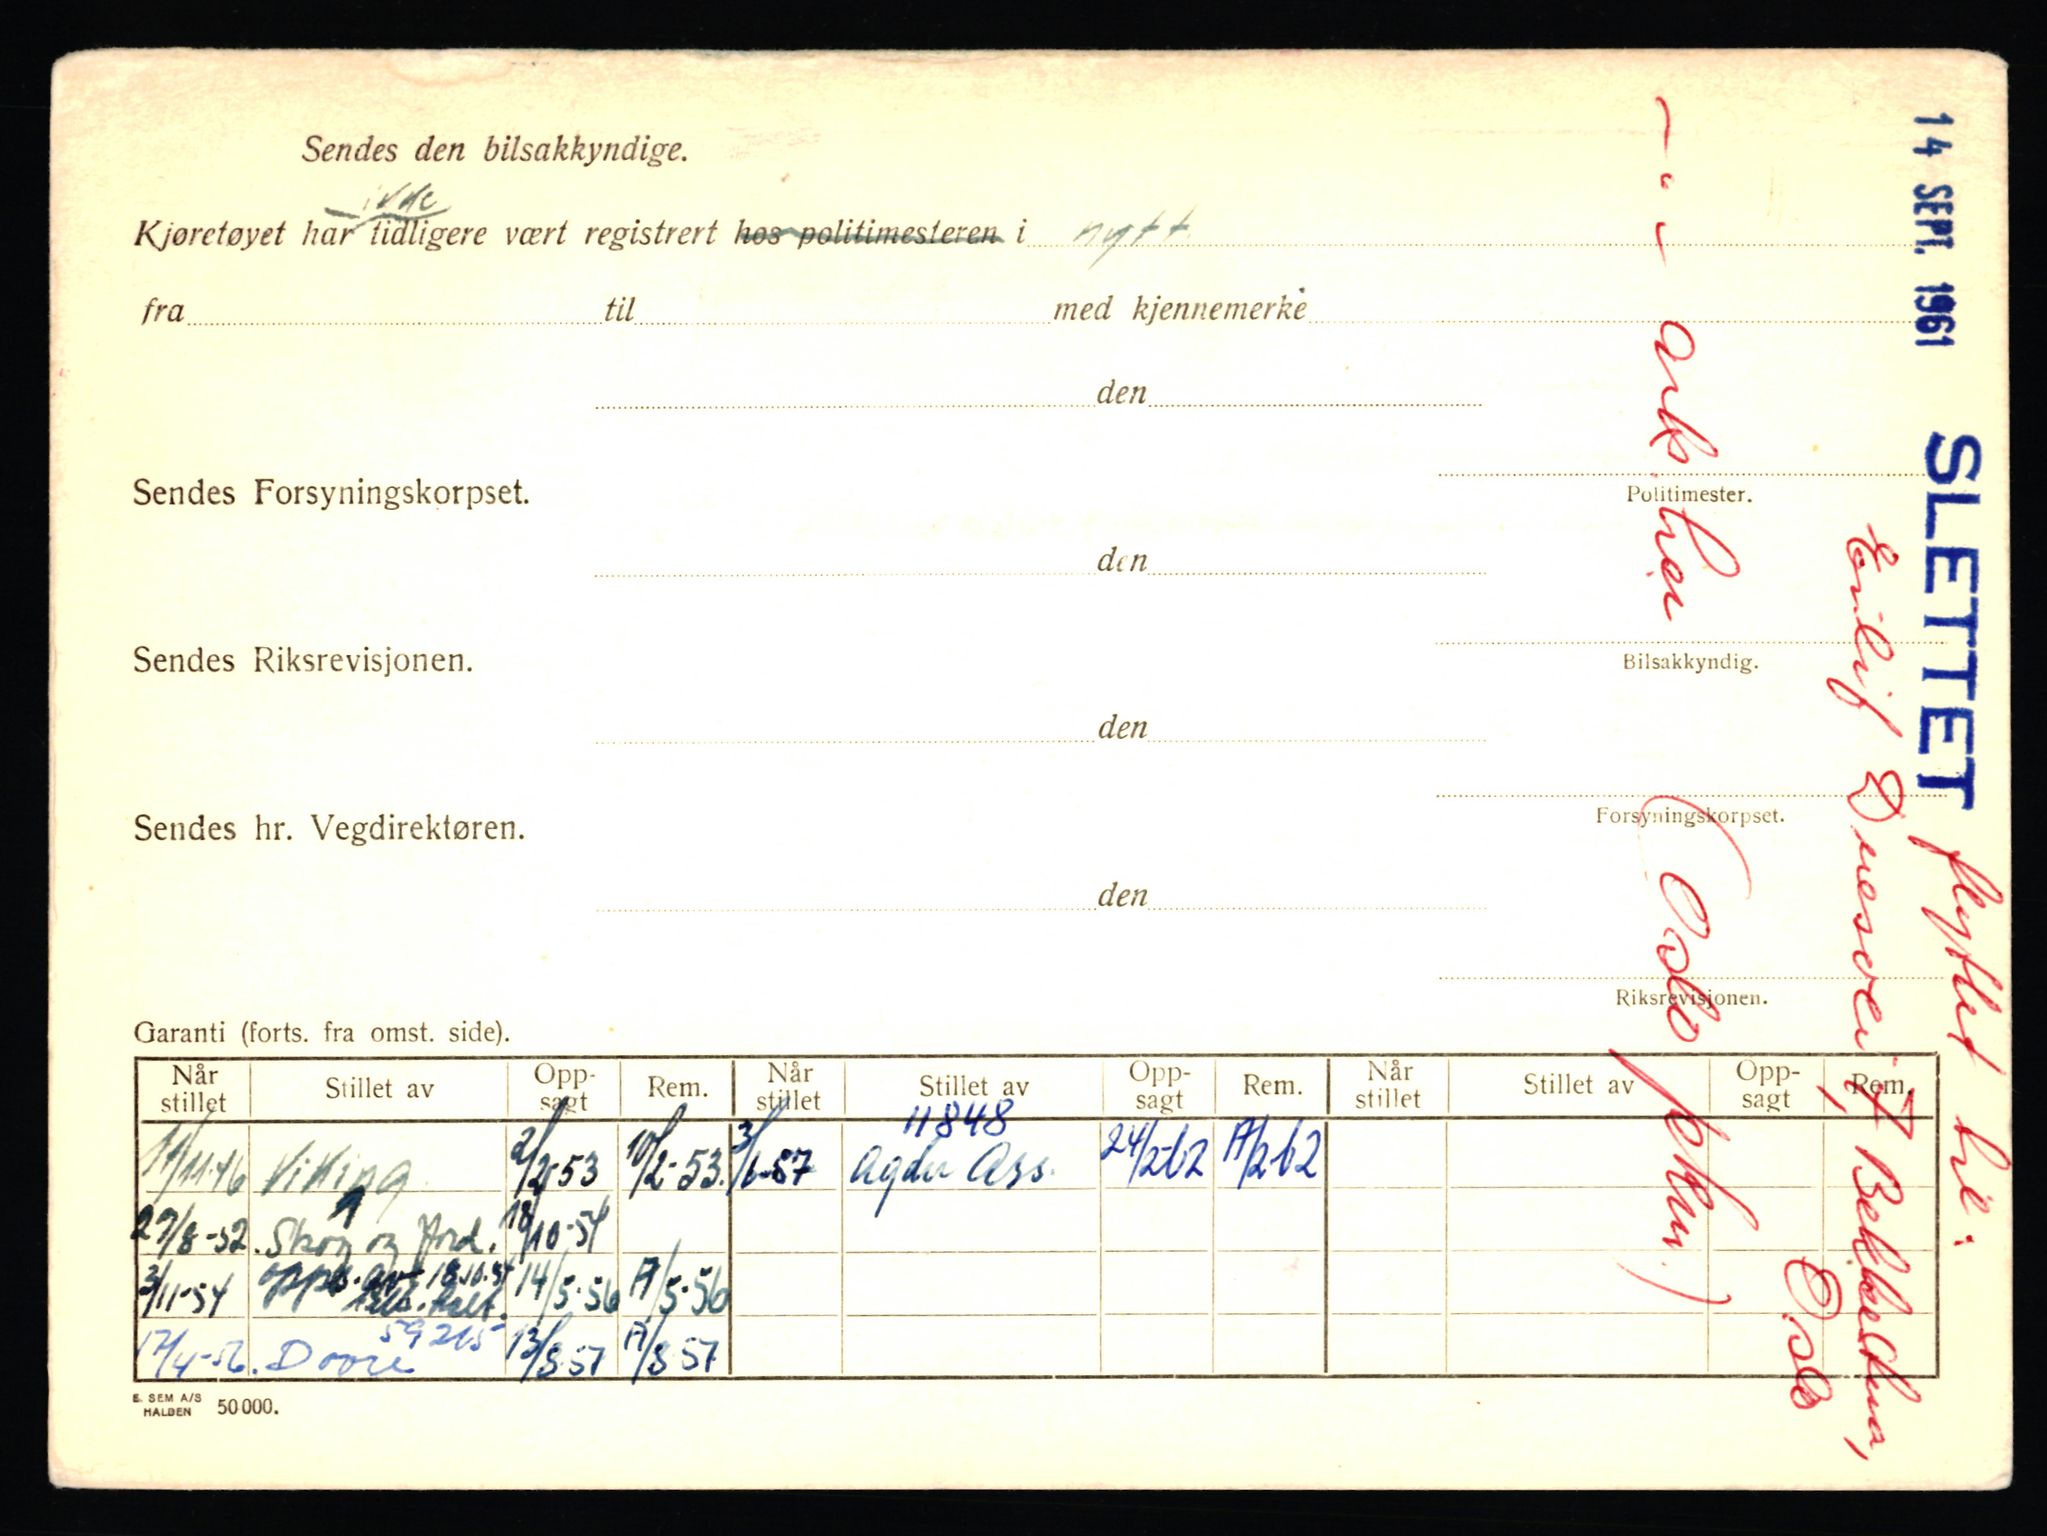 Sendes den bilsakkyndige.
ikke
Kjøretøyet har tidligere vært registrert hos politimesteren i nytt
fra til med kjennemerke
den
Politimester.
Sendes Forsyningskorpset.
den
Bilsakkyndig.
Sendes Riksrevisjonen.
den
Forsyningskorpset.
Sendes hr. Vegdirektøren.
den
Riksrevisjonen.
Garanti (forts. fra omst. side).
Når stillet Stillet av Opp-sagt Rem. Når stillet Stillet av Opp-sagt Rem. Når stillet Stillet av Opp-sagt Rem.
11848
14/11-46 Viking 2/2-53 10/2-53. 3/6-57 Agder Ass. 24/2-62 A/2-62
27/8-52. Skog og Jord. 18/10-54
3/11-54 opps. av 18.10.54 14/5-56 A/5-56
59265
17/4-56. Dovre 13/8-57 A/8-57
E. SEM A/S
HALDEN 50000.
14 SEPT. 1961 SLETTET flyttet til:
Eivilif Dnesvei 7 Bekkelthua,
Oslo
— " — ark her (Oslo pkm.)